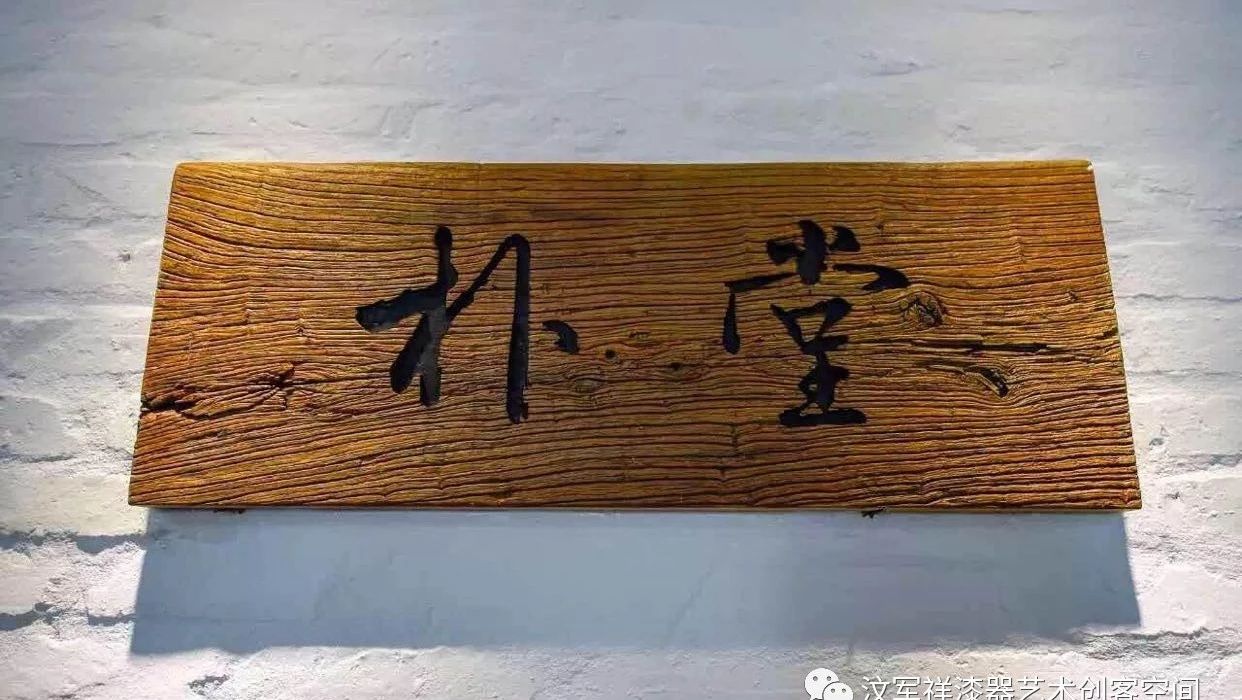 朴堂
汶军祥漆器艺术创客空间